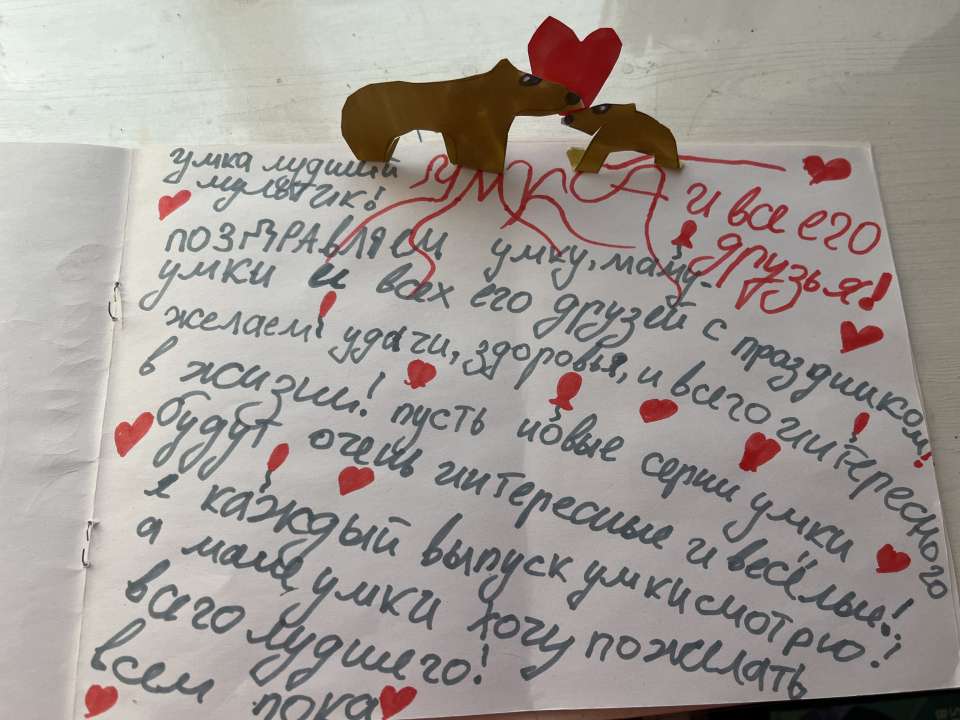 умка лудший
мультик!
УМКА и все его
друзья!
ПОЗДРАВЛЯЕМ умку, маму-
умки и всех его друзей с праздником!
желаем удачи, здоровья, и всего интересного
в жизни! пусть новые серии умки
будут очень интересные и весёлые!
я каждый выпуск умки смотрю!
а маме умки хочу пожелать
всего лудшего!
всем пока